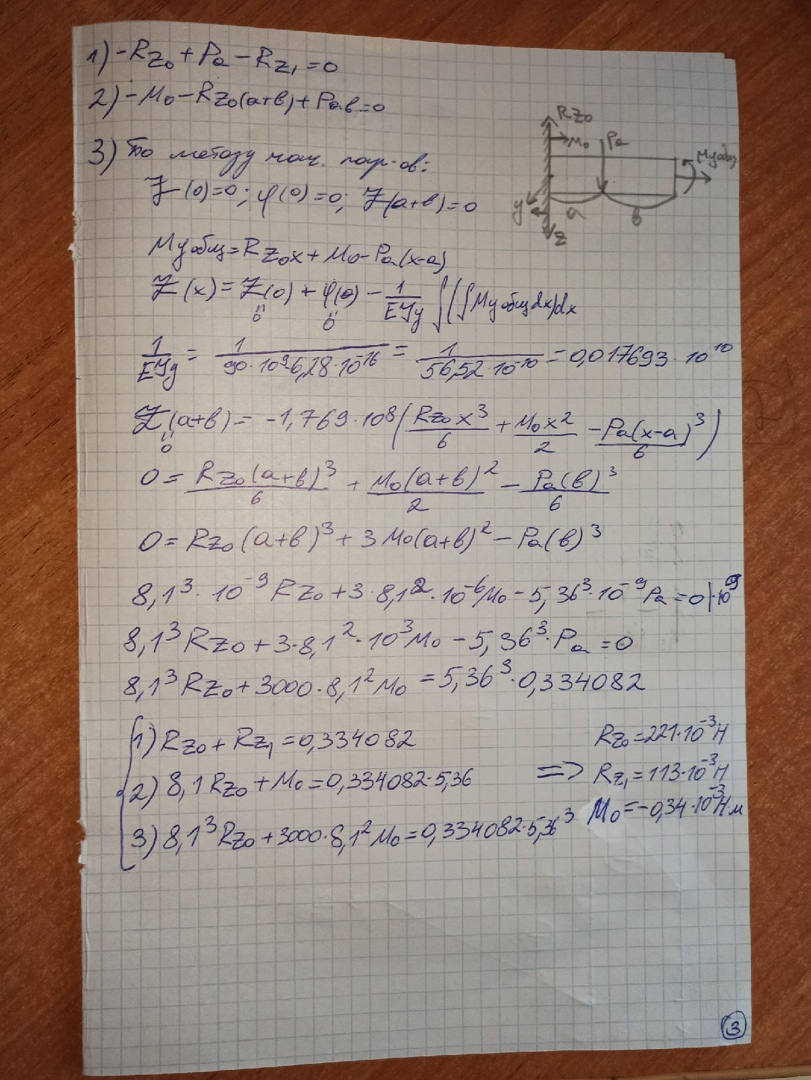 1) -Rz₀ + Pa - Rz₁ = 0
2) -M₀ - Rz₀(a+в) + Paв = 0
3) По методу нач. пар-ов:
Z(0)=0; φ(0)=0; Z(a+в)=0
Rz₀
M₀
Pa
Mу общ
y
a
в
z
Mу общ = Rz₀x + M₀ - Pa(x-a)
Z(x) = Z(0) + φ(0) - 1/EJy ∫(∫Mу общ dx)dx
0 0
1/EJy = 1/90·10⁹·6,28·10⁻¹⁶ = 1/56,52·10⁻¹⁰ = 0,017693·10¹⁰
Z(a+в) = -1,769·10⁸(Rz₀x³/6 + M₀x²/2 - Pa(x-a)³/6)
0
0 = Rz₀(a+в)³/6 + M₀(a+в)²/2 - Pa(в)³/6
0 = Rz₀(a+в)³ + 3M₀(a+в)² - Pa(в)³
8,1³·10⁻⁹Rz₀ + 3·8,1²·10⁻⁶M₀ - 5,36³·10⁻⁹Pa = 0 |·10⁹
8,1³Rz₀ + 3·8,1²·10³M₀ - 5,36³·Pa = 0
8,1³Rz₀ + 3000·8,1²M₀ = 5,36³·0,334082
1) Rz₀ + Rz₁ = 0,334082
2) 8,1Rz₀ + M₀ = 0,334082·5,36
3) 8,1³Rz₀ + 3000·8,1²M₀ = 0,334082·5,36³
=> Rz₀ = 221·10⁻³Н
Rz₁ = 113·10⁻³Н
M₀ = -0,34·10⁻³Н·м
3